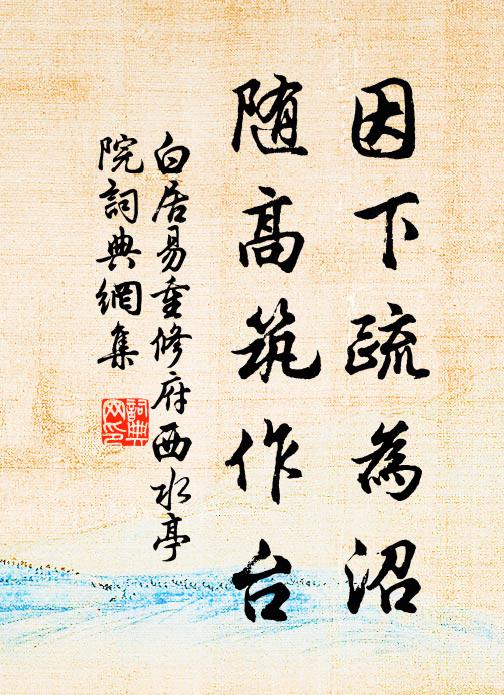 因下疏為沼
随高筑作台
白居易重修府西水亭
院詞典網集
詞典
网印